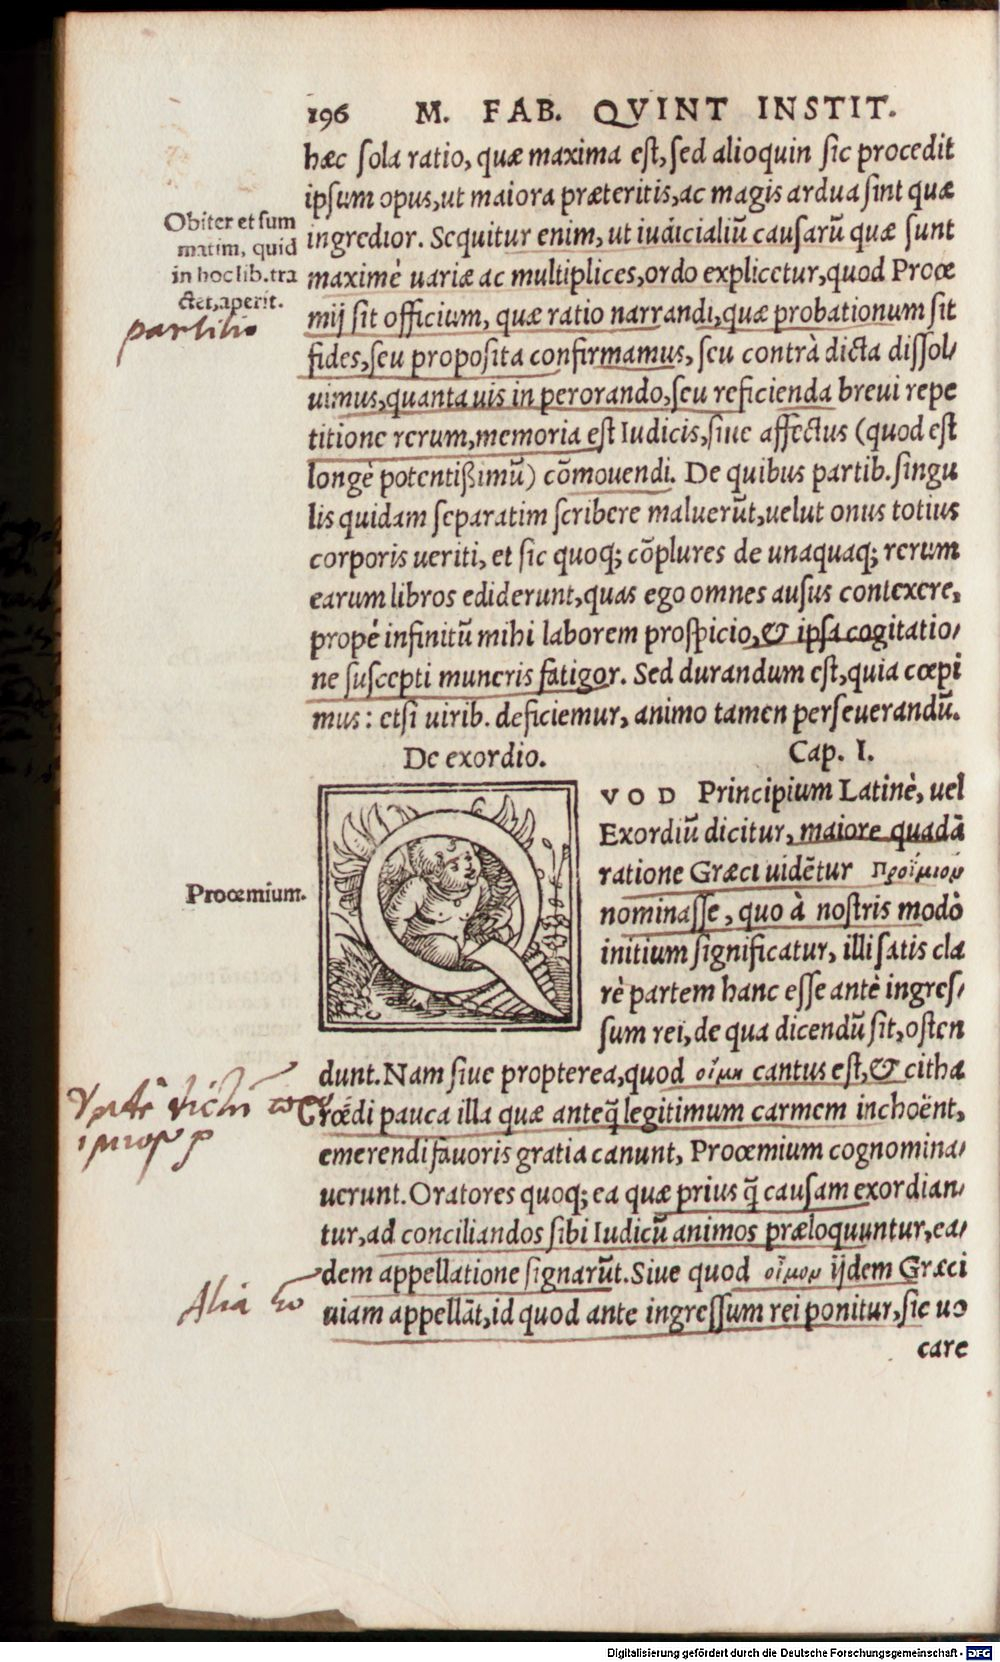 196 M. FAB. QVINT INSTIT.
hæc sola ratio, quæ maxima est, sed alioquin sic procedit
ipsum opus, ut maiora præteritis, ac magis ardua sint quæ
Obiter et sum
matim, quid
in hoc lib. tra
ctet, aperit.
partitio
ingredior. Sequitur enim, ut iudicialiū causarū quæ sunt
maximè uariæ ac multiplices, ordo explicetur, quod Procœ
mij sit officium, quæ ratio narrandi, quæ probationum sit
fides, seu proposita confirmamus, seu contrà dicta dissol/
uimus, quanta uis in perorando, seu reficienda breui repe
titione rerum, memoria est Iudicis, siue affectus (quod est
longè potentißimū) cōmouendi. De quibus partib. singu
lis quidam separatim scribere maluerūt, uelut onus totius
corporis ueriti, et sic quoq; cōplures de unaquaq; rerum
earum libros ediderunt, quas ego omnes ausus contexere,
propè infinitū mihi laborem prospicio, & ipsa cogitatio/
ne suscepti muneris fatigor. Sed durandum est, quia cœpi
mus: etsi uirib. deficiemur, animo tamen perseuerandū.
De exordio. Cap. I.
Proœmium.
QVOD Principium Latinè, uel
Exordiū dicitur, maiore quadā
ratione Græci uidētur προοίμιομ
nominasse, quo à nostris modò
initium significatur, illi satis cla
rè partem hanc esse antè ingres/
sum rei, de qua dicendū sit, osten
dunt. Nam siue propterea, quod οἴμη cantus est, & citha
rœdi pauca illa quæ anteq̄ legitimum carmem inchoënt,
emerendi fauoris gratia canunt, Proœmium cognomina/
uerunt. Oratores quoq; ea quæ prius q̄ causam exordian/
tur, ad conciliandos sibi Iudicū animos præloquuntur, ea/
dem appellatione signarūt. Siue quod οἶμομ ijdem Græci
Alia
uiam appellāt, id quod ante ingressum rei ponitur, sic uo
care
Digitalisierung gefördert durch die Deutsche Forschungsgemeinschaft - DFG